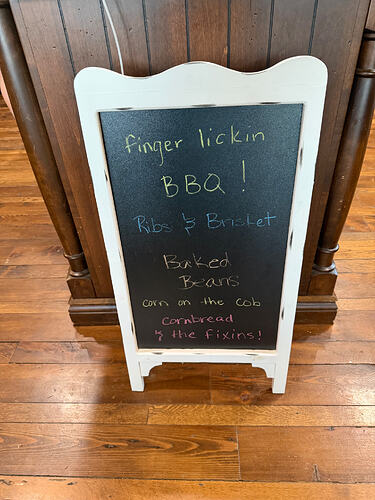 finger lickin
BBQ!
Ribs & Brisket
Baked
Beans
corn on the cob
cornbread
& the fixins!